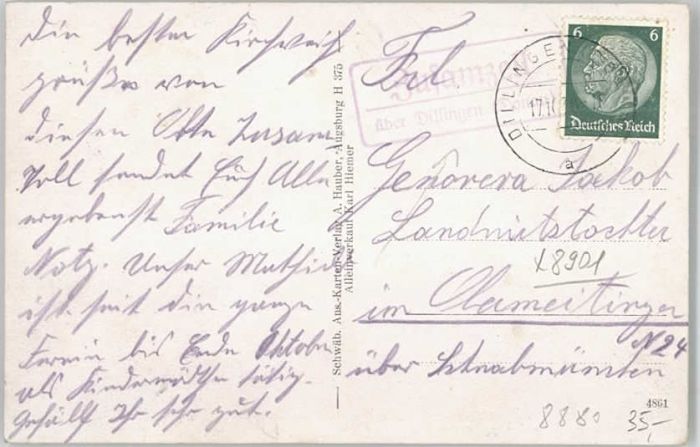 Die besten Kirchweih
grüße von
diesen Orte Zusam
sendet Euch Alle
ergebenst Familie
Notz. Unser Mathild
ist seit die ganze
Ferien bis Ende Oktober
als Kindermädchen tätig.
Gefällt Ihr sehr gut.
Schwäb. Ans.-Karten-Verlag A. Hauber, Augsburg H 375
Alleinverkauf Karl Hiemer
über Dillingen Donau
DILLINGEN
17.10
a
6 6
Deutsches Reich
Frl.
Genovera Jakob
Landwirtstochter
x8901
im Obermeitingen
N24
über Schwabmünchen
4861
8880 35,-